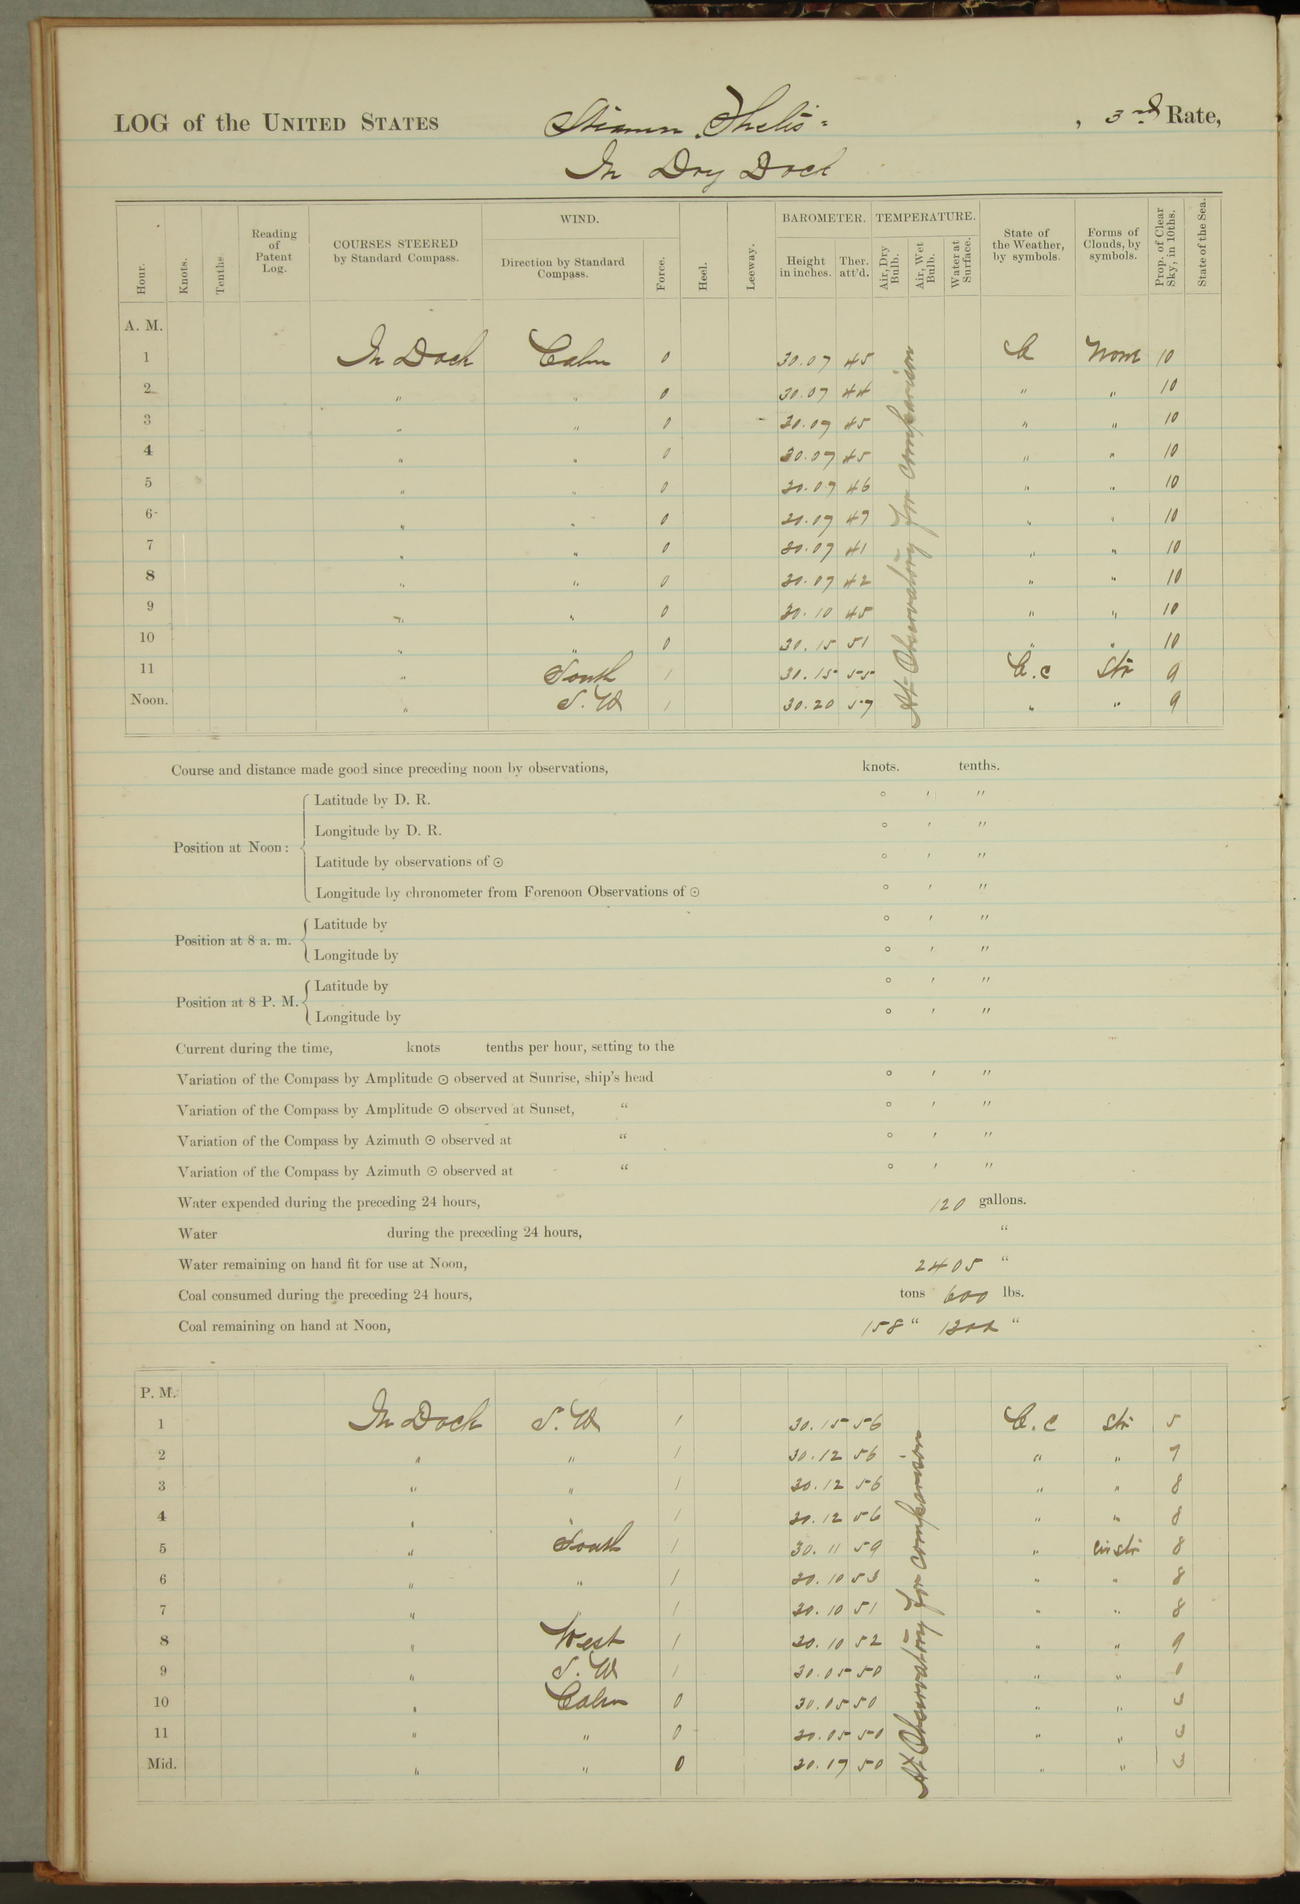 LOG of the UNITED STATES Steamer "Thetis" , 3rd Rate,
In Dry Dock
Hour. Knots. Tenths. Reading of Patent Log. COURSES STEERED by Standard Compass. WIND. Direction by Standard Compass. Force. Heel. Leeway. BAROMETER. Height in inches. Ther. att'd. TEMPERATURE. Air, Dry Bulb. Air, Wet Bulb. Water at Surface. State of the Weather, by symbols. Forms of Clouds, by symbols. Prop. of Clear Sky, in 10ths. State of the Sea.
A. M.
1 In Dock Calm 0 30.07 45 b None 10
2 " " 0 30.07 44 " " 10
3 " " 0 30.07 45 " " 10
4 " " 0 30.07 45 " " 10
5 " " 0 30.07 46 " " 10
6 " " 0 30.07 47 " " 10
7 " " 0 30.07 41 " " 10
8 " " 0 30.07 42 " " 10
9 " " 0 30.10 45 " " 10
10 " " 0 30.15 51 " " 10
11 " South 1 30.15 55 b.c Str 9
Noon. " S.W 1 30.20 57 " " 9
At Observatory for comparison
Course and distance made good since preceding noon by observations, knots. tenths.
Position at Noon: Latitude by D. R. ° ′ ″
Longitude by D. R. ° ′ ″
Latitude by observations of ⊙ ° ′ ″
Longitude by chronometer from Forenoon Observations of ⊙ ° ′ ″
Position at 8 a. m. Latitude by ° ′ ″
Longitude by ° ′ ″
Position at 8 P. M. Latitude by ° ′ ″
Longitude by ° ′ ″
Current during the time, knots tenths per hour, setting to the
Variation of the Compass by Amplitude ⊙ observed at Sunrise, ship's head ° ′ ″
Variation of the Compass by Amplitude ⊙ observed at Sunset, “ ° ′ ″
Variation of the Compass by Azimuth ⊙ observed at “ ° ′ ″
Variation of the Compass by Azimuth ⊙ observed at “ ° ′ ″
Water expended during the preceding 24 hours, 120 gallons.
Water during the preceding 24 hours, “
Water remaining on hand fit for use at Noon, 2405 “
Coal consumed during the preceding 24 hours, tons 600 lbs.
Coal remaining on hand at Noon, 158 “ “
P. M.
1 In Dock S.W 1 30.15 56 b.c Str 5
2 " " 1 30.12 56 " " 7
3 " " 1 30.12 56 " " 8
4 " " 1 30.12 56 " " 8
5 " South 1 30.11 59 " cir str 8
6 " " 1 30.10 53 " " 8
7 " 1 30.10 51 " " 8
8 " West 1 30.10 52 " " 9
9 " S.W 1 30.05 50 " "
10 " Calm 0 30.05 50 " "
11 " " 0 30.05 50 " "
Mid. " " 0 30.17 50 " "
At Observatory for comparison